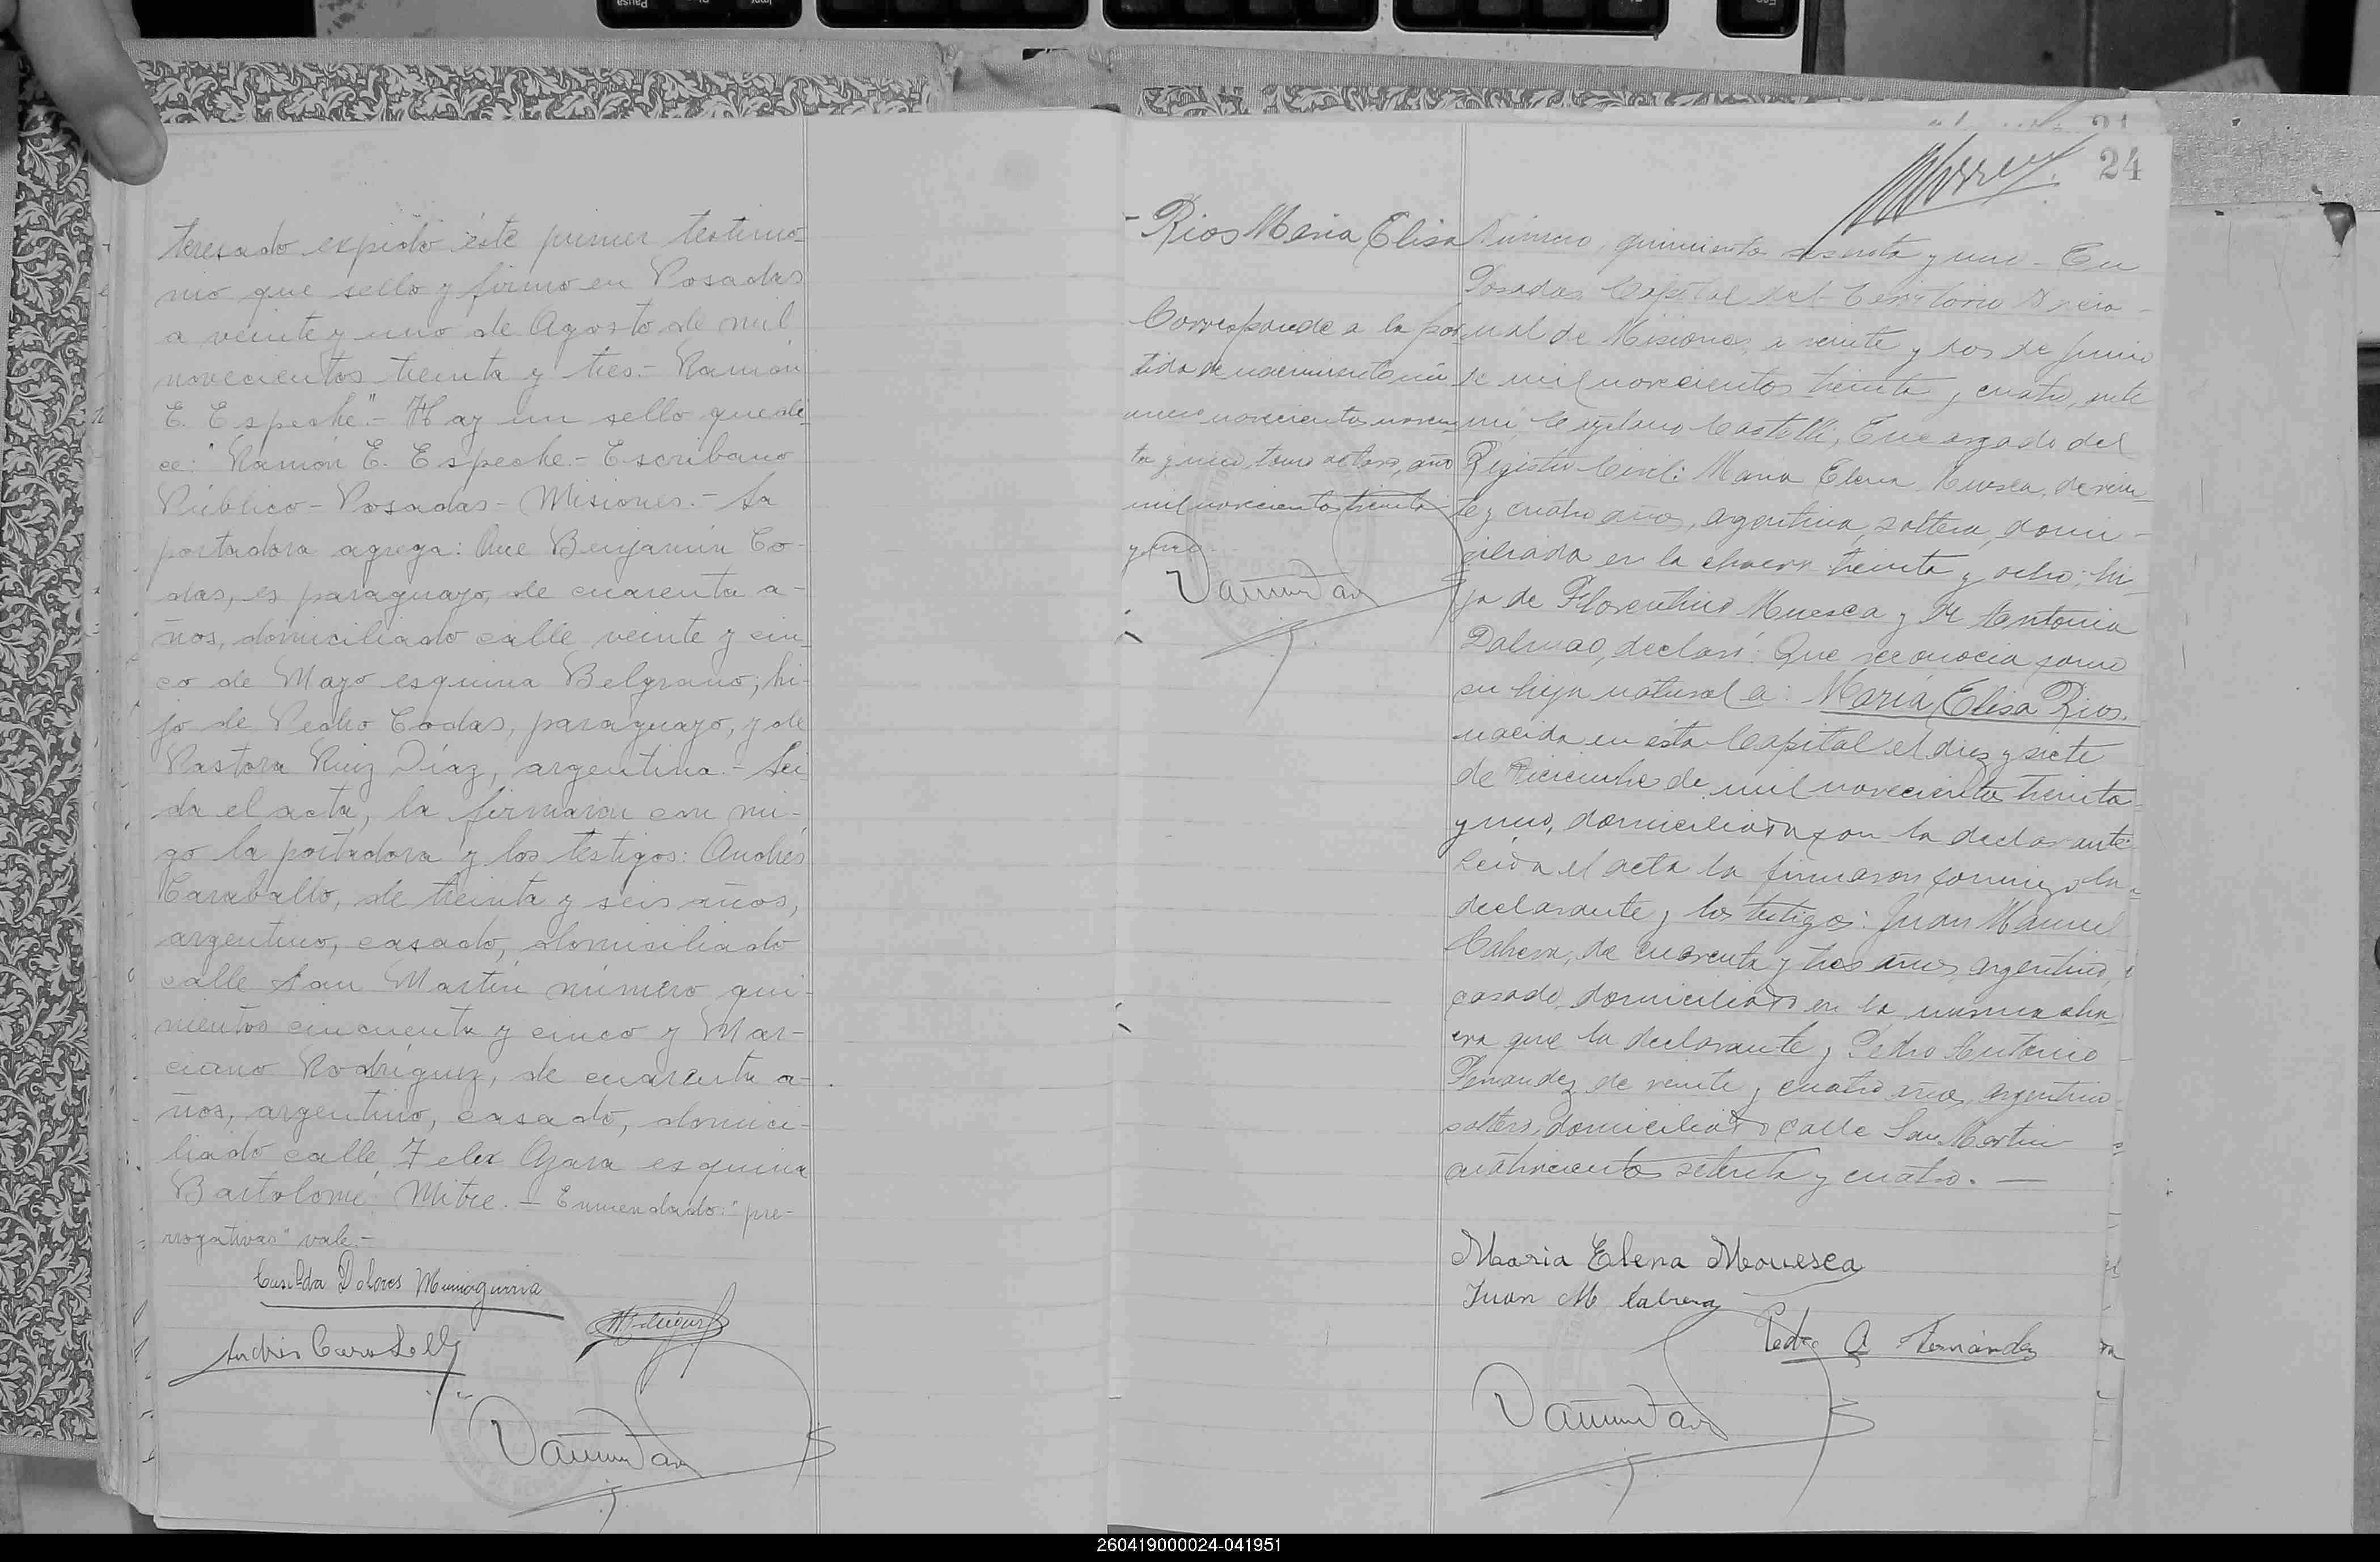 teresado expido éste primer testimo-
nio que sello y firmo en Posadas
a veinte y uno de Agosto de mil
novecientos treinta y tres.- Ramón
E. Espeche".- Hay un sello que di-
ce: "Ramón E. Espeche.- Escribano
Público - Posadas - Misiones.- La
portadora agrega: Que Benjamín Co-
das, es paraguayo, de cuarenta a-
ños, domiciliado calle veinte y cin-
co de Mayo esquina Belgrano; hi-
jo de Pedro Codas, paraguayo, y de
Pastora Ruiz Díaz, argentina.- Leí-
da el acta, la firmaron con mi-
go la portadora y los testigos: Andrés
Caraballo, de treinta y seis años,
argentino, casado, domiciliado
calle San Martín número qui-
nientos cincuenta y cinco y Mar-
ciano Rodríguez, de cuarenta a-
ños, argentino, casado, domici-
liado calle Felix Azara esquina
Bartolomé Mitre.- Enmendado: "pre-
rrogativas" vale.-
Casilda Dolores
Andrés Caraballo
24
Rios Maria Elisa
Corresponde a la par
tida de nacimiento nú
mero novecientos noven
ta y uno tomo octavo, año
mil novecientos treinta
y uno.
Número, quinientos sesenta y uno - En
Posadas Capital del Territorio Nacio-
nal de Misiones, a veinte y dos de Junio
de mil novecientos treinta y cuatro, ante
mí, Cayetano Castelli, Encargado del
Registro Civil: Maria Elena Muesca, de vein-
te y cuatro años, argentina, soltera, domi-
ciliada en la chacra treinta y ocho; hi-
ja de Florentino Muesca y de Antonia
Dalmao, declaró: Que reconocía como
su hija natural a: María Elisa Rios.
nacida en ésta Capital el diez y siete
de Diciembre de mil novecientos treinta
y uno, domiciliada con la declarante.
Leida el acta la firmaron conmigo la
declarante y los testigos: Juan Manuel
Cabrera, de cuarenta y tres años, argentino,
casado, domiciliado en la misma cha-
cra que la declarante y Pedro Antonio
Fernandez de veinte y cuatro años, argentino
soltero, domiciliado calle San Martin
cuatrocientos setenta y cuatro. —
Maria Elena Mouesca
Juan M Cabrera
Pedro A Fernández
260419000024-041951